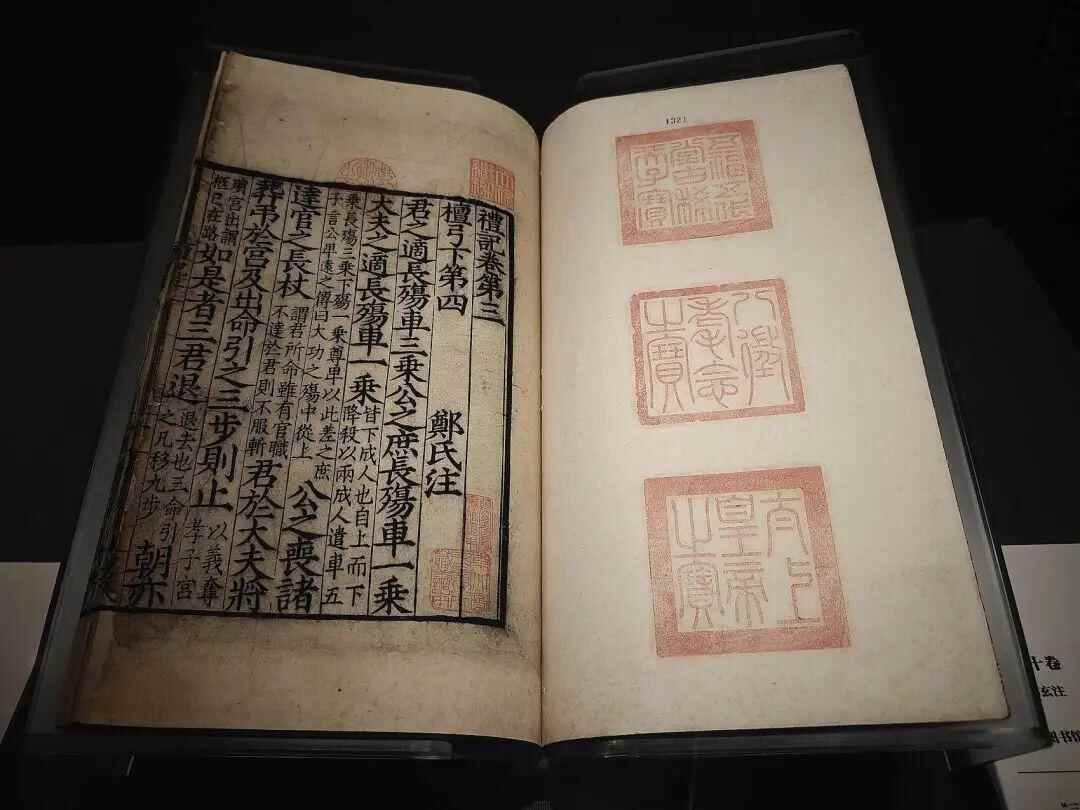 1321
五福五代
堂古稀
天子寶
八徵
耄念
之寶
太上
皇帝
之寶
禮記卷第三
檀弓下第四 鄭氏注
君之適長殤車三乘公之庶長殤車一乘
大夫之適長殤車一乘 皆下成人也自上而下降殺以兩成人遣車五
乘長殤三乘下殤一乘尊卑以此差之庶子言公卑遠之傳曰大功之殤中從上 公之喪諸
達官之長杖 謂君所命雖有官職不達於君則不服斬 君於大夫將
葬弔於宮及出命引之三步則止 以義奪孝子宮
殯宮出謂柩已在路 如是者三君退 退去也三命引之凡移九步 朝亦
十卷
玄注
图书馆